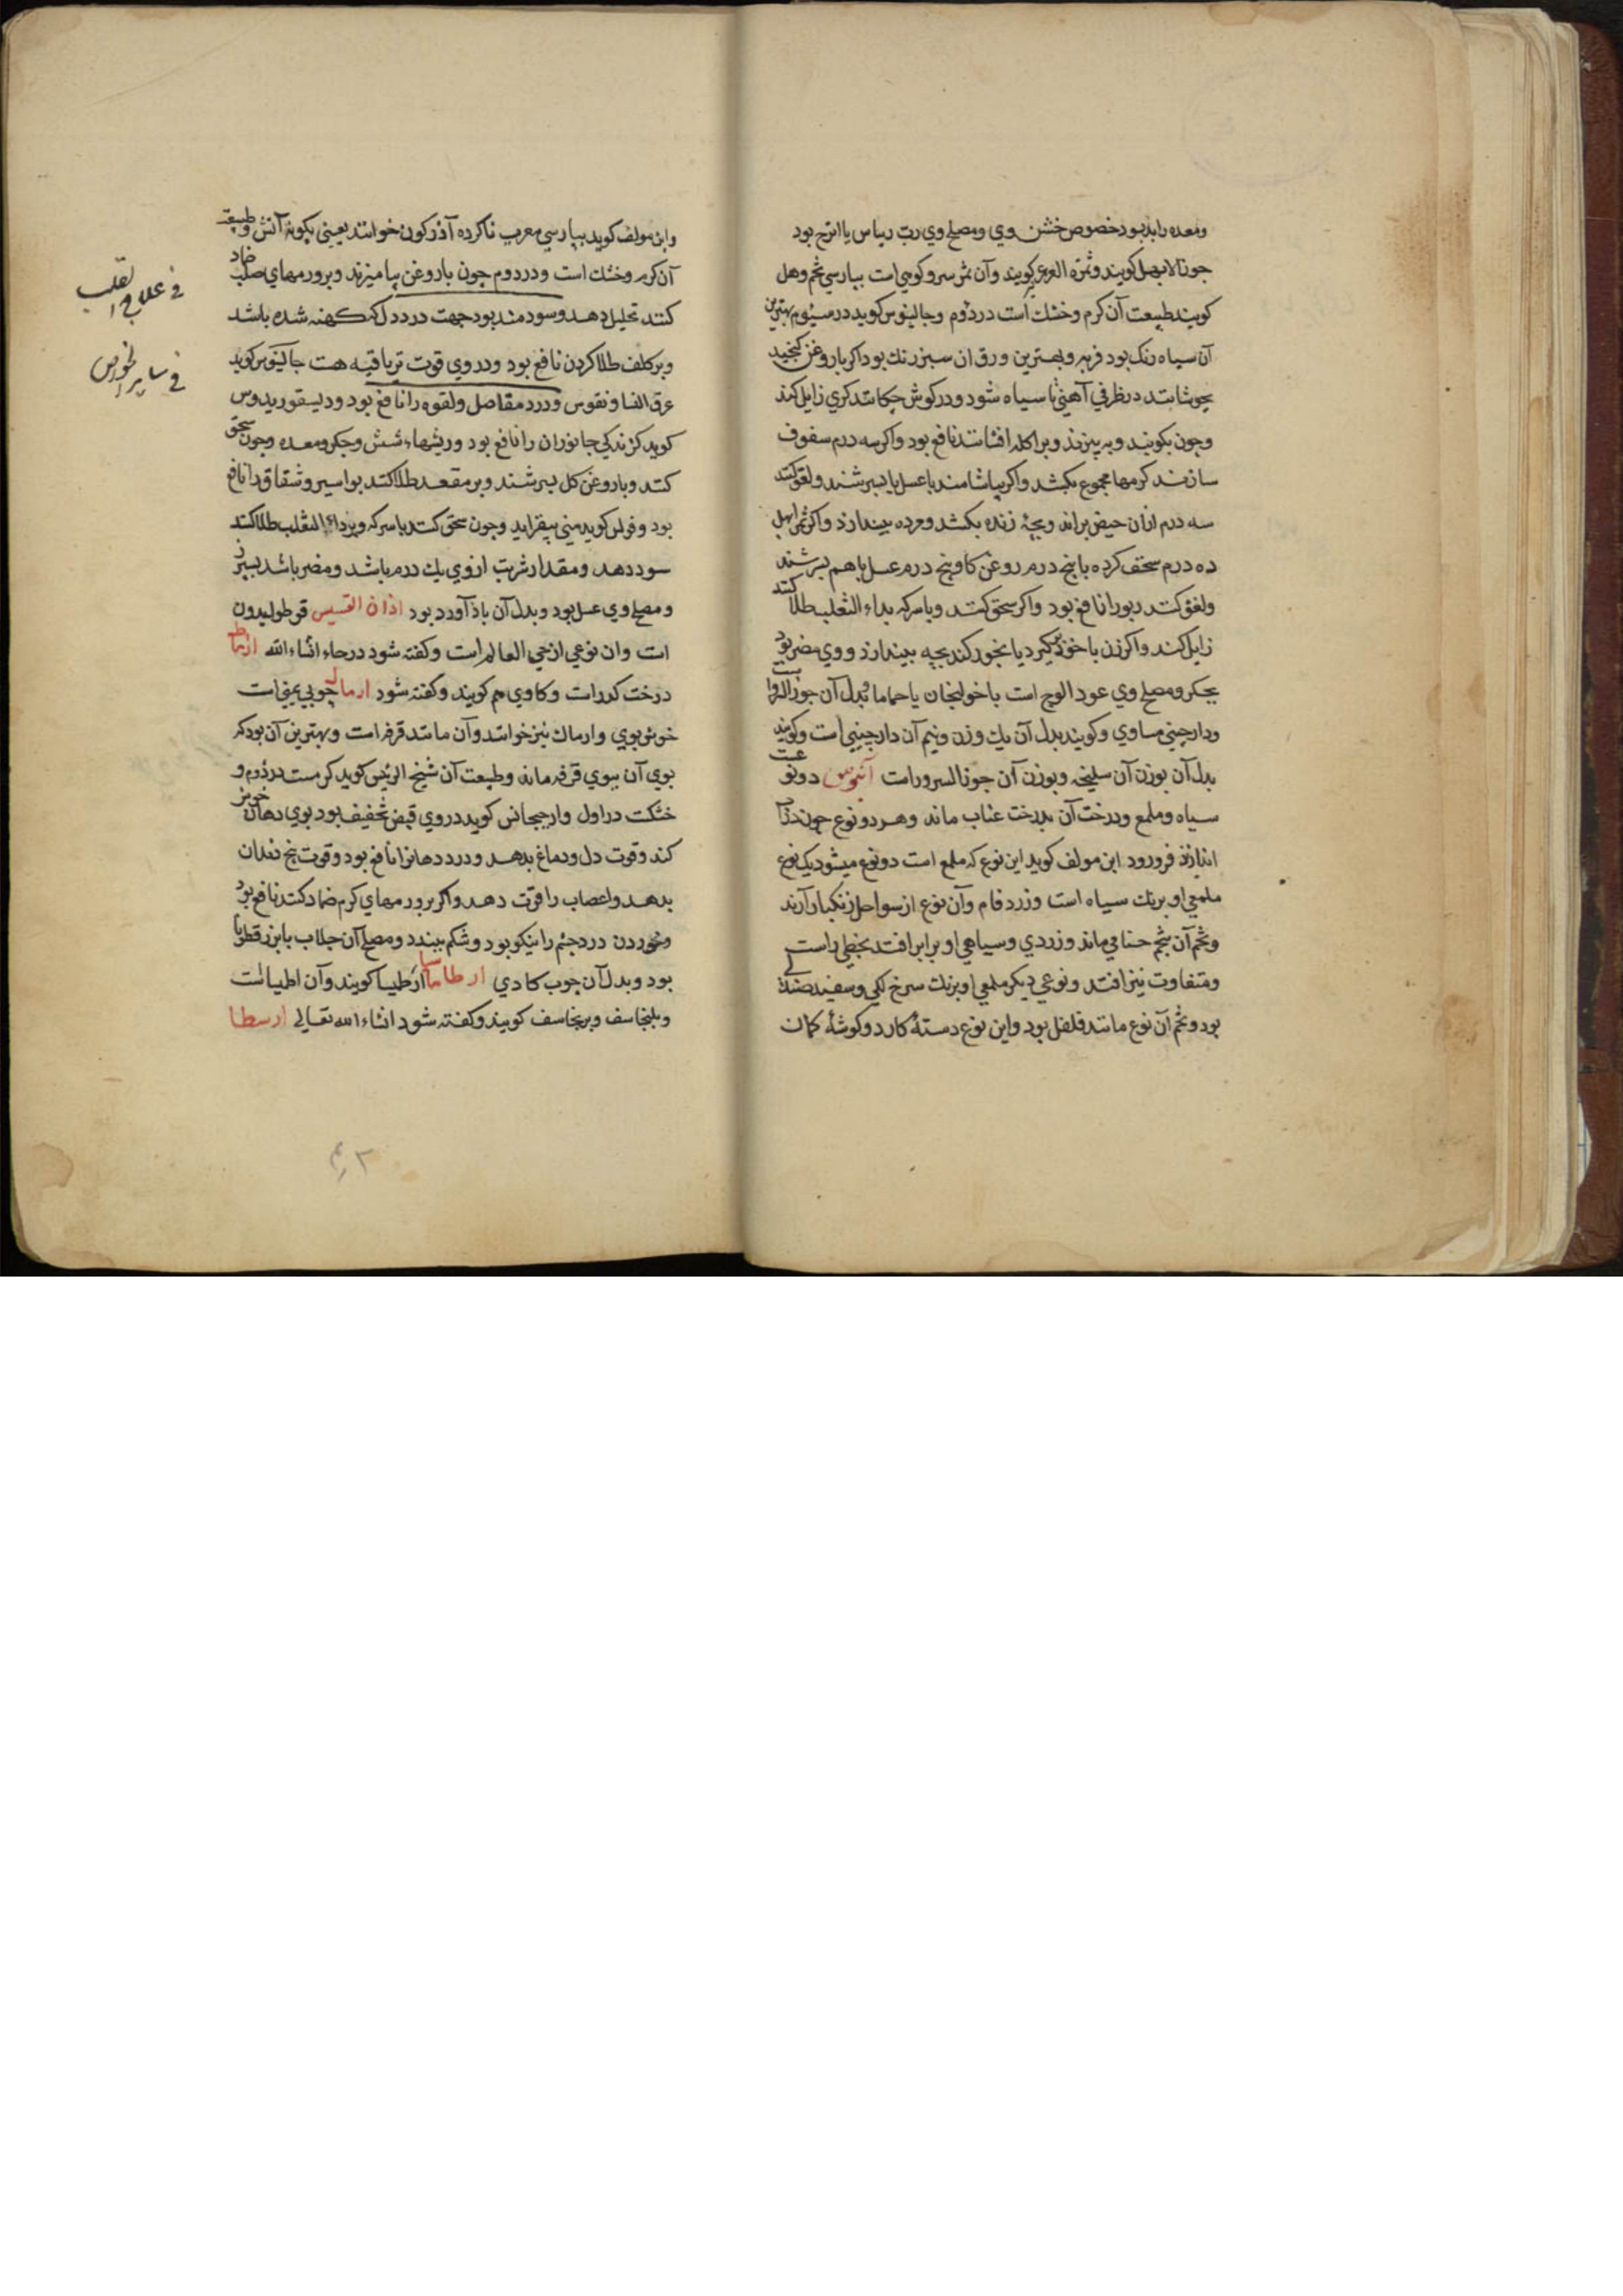 ومعده را بد بود خصوص خشن وی ومصلح وی رب ریباس یا اترج بود
جوز الابهل کویند وثمرة العرعر کویند وآن ثمر سرو کوهی است بپارسی تخم وهل
کویند طبیعت آن کرم وخشك است در دوم وجالینوس کوید در سیوم بهترین
آن سیاه رنک بود فربه وبهترین ورق ان سبز رنك بود اکر با روغن کنجید
بجوشانند در ظرفی آهنی تا سیاه شود ودر کوش چکانند کری زایل کند
وچون بکوبند وبه بیزند وبر اکله افشانند نافع بود واکر سه درم سفوف
سازند کرمها مجموع بکشد واکر بیاشامند با عسل یا بسرشند ولعق کنند
سه درم ازان حیض براند وبچۀ زنده بکشد ومرده بیندازد واکر ثمر ابهل
ده درم سحق کرده با پنج درم روغن کاو پنج درم عسل باهم بسرشند
ولعق کنند ربو را نافع بود واکر سحق کنند وبا سرکه بداء الثعلب طلا کنند
زایل کند واکر زن با خود برکیرد یا بخور کند بچه بیندازد ووی مضر بود
بجکر ومصلح وی عود الوج است با خولنجان یا حماما وبدل آن جوز السرو است
ودارچینی مساوی وکویند بدل آن یك وزن ونیم آن دارچینی است وکویند
بدل آن بوزن آن سلیخه وبوزن آن جوز السرو است آبنوس دو نوعست
سیاه وملمع ودرخت آن بدرخت عناب ماند وهر دو نوع چون در آب
اندازند فرو رود ابن مولف کوید این نوع که ملمع است دو نوع میشود یک نوع
ملمعی او برنك سیاه است وزرد فام وآن نوع از سواحل زنکبار آرند
وتخم آن بتخم حنا می ماند وزردی وسیاهی او برابر افتد بخطی راست
ومتفاوت نیز افتد ونوعی دیکر ملمعی او برنك سرخ لکی وسفید
بود وتخم آن نوع مانند فلفل بود واین نوع دستۀ کارد وکوشۀ کمان
وابن مولف کوید بپارسی معرب ناکرده آذرکون خوانند یعنی بکونۀ آتش وطبیعت
آن کرم وخشك است ودر دوم چون با روغن بیامیزند وبر ورمهای صلب ضماد
کنند تحلیل دهد وسودمند بود جهت درد دل که کهنه شده باشد
وبر کلف طلا کردن نافع بود ودر وی قوت تریاقیه هست جالینوس کوید
عرق النسا ونقرس ودرد مفاصل ولقوه را نافع بود ودیسقوریدوس
کوید کزندکی جانوران را نافع بود وریشهاء شش وجکر ومعده وچون سحق
کنند وبا روغن کل بسرشند وبر مقعد طلا کنند بواسیر وشقاق را نافع
بود وفولس کوید منی بیفزاید وچون سحق کنند با سرکه وبر داء الثعلب طلا کنند
سود دهد ومقدار شربت از وی یك درم باشد ومضر باشد بسپرز
ومصلح وی عسل بود وبدل آن باذآورد بود اذان القسیس قوطولیدون
است وان نوعی از حی العالم است وکفته شود در حاء انشاء الله
درخت کدر است وکادی هم کویند وکفته شود ارمال چوبی یمنی است
خوش بوی وارماك نیز خوانند وآن مانند قرفه است وبهترین آن بود که
بوی آن ببوی قرفه ماند وطبیعت آن شیخ الرئیس کوید کرمست در دوم و
خشکست در اول وارجیجانس کوید در وی قبض تخفیف بود بوی دهان خوش
کند وقوت دل ودماغ بدهد ودرد دهانرا نافع بود وقوت بیخ دندان
بدهد واعصاب را قوت دهد واکر بر ورمهای کرم ضماد کنند نافع بود
وخوردن درد چشم را نیکو بود وشکم ببندد ومصلح آن جلاب با بزرقطونا
بود وبدل آن چوب کادی ارطاماسیا ارطیسا کویند وآن
وبلنجاسف وبرنجاسف کویند وکفته شود انشاء الله تعالی ارسطا
فی علاج القلب
فی سایر الخواص